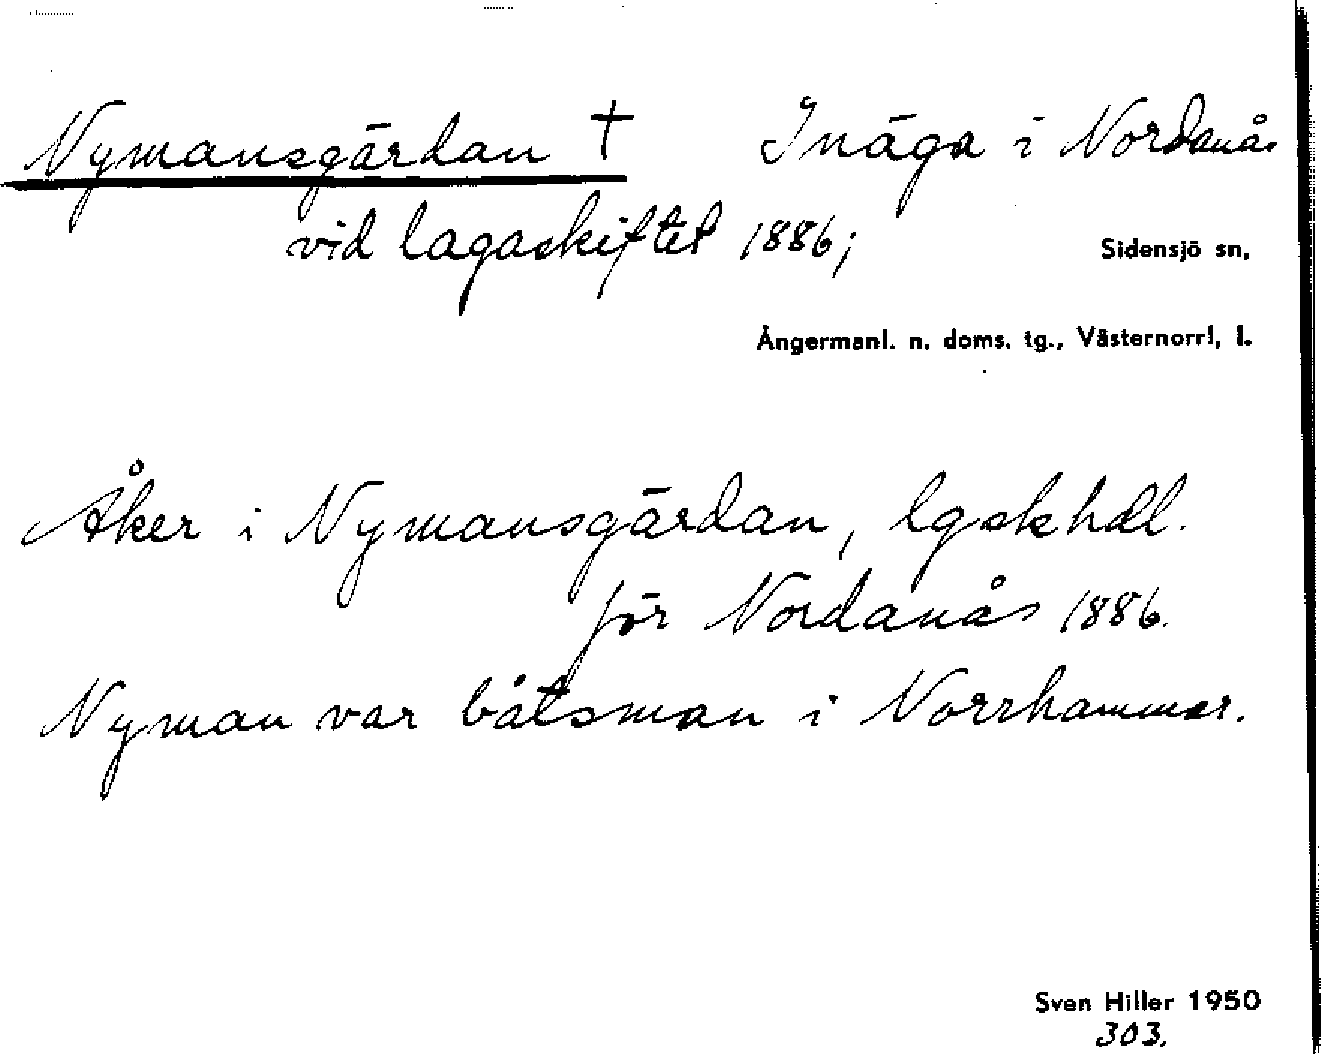 Nymansgärdan † Inäga i Nordanås
vid lagaskiftet 1886;
Sidensjö sn,
Ångermanl. n. doms. tg., Västernorrl. l.
Åker i Nymansgärdan, lgskhdl.
för Nordanås 1886.
Nyman var båtsman i Norrhammar.
Sven Hiller 1950
303.